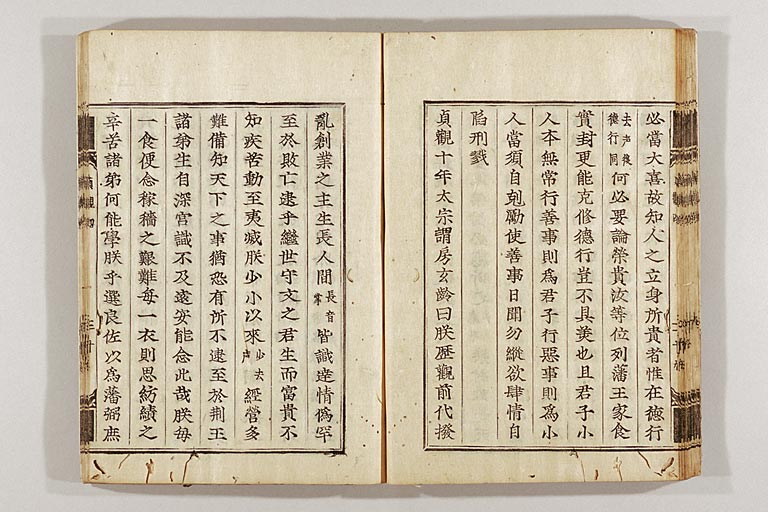 必當大喜故知人之立身所貴者惟在德行
去声後德行同何必要論榮貴汝等位列藩王家食
實封更能克修德行豈不具羙也且君子小
人本無常行善事則爲君子行惡事則爲小
人當須自剋勵使善事日聞勿縱欲肆情自
䧟刑戮
貞觀十年太宗謂房玄齡曰朕歷觀前代撥
亂創業之主生長人間長音掌皆識達情僞罕
至於敗亡逮乎繼世守文之君生而富貴不
知疾苦動至夷滅朕少小以來少去声經營多
難備知天下之事猶恐有所不逮至於荆王
諸弟生自深宫識不及遠安能念此哉朕每
一食便念稼穡之艱難每一衣則思紡績之
辛苦諸弟何能學朕乎選良佐以爲藩弼庶